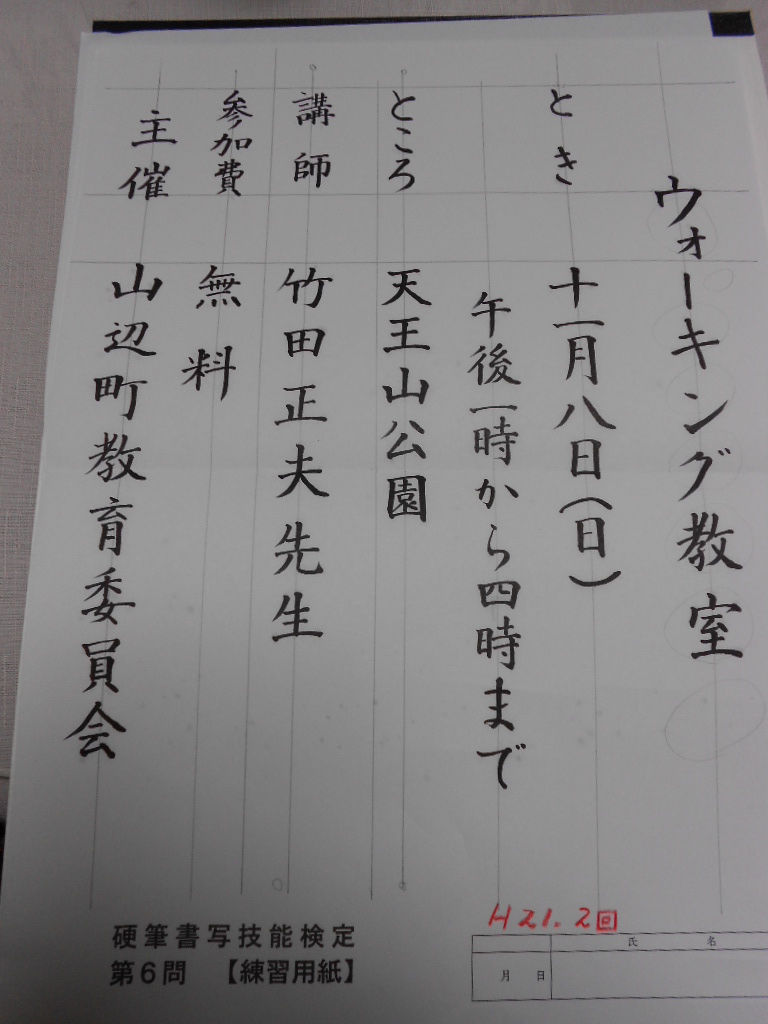 ウォーキング教室
とき 十一月八日(日)
午後一時から四時まで
ところ 天王山公園
講師 竹田正夫先生
参加費 無料
主催 山辺町教育委員会
H21.2回
硬筆書写技能検定
第6問 【練習用紙】
氏 名
月 日